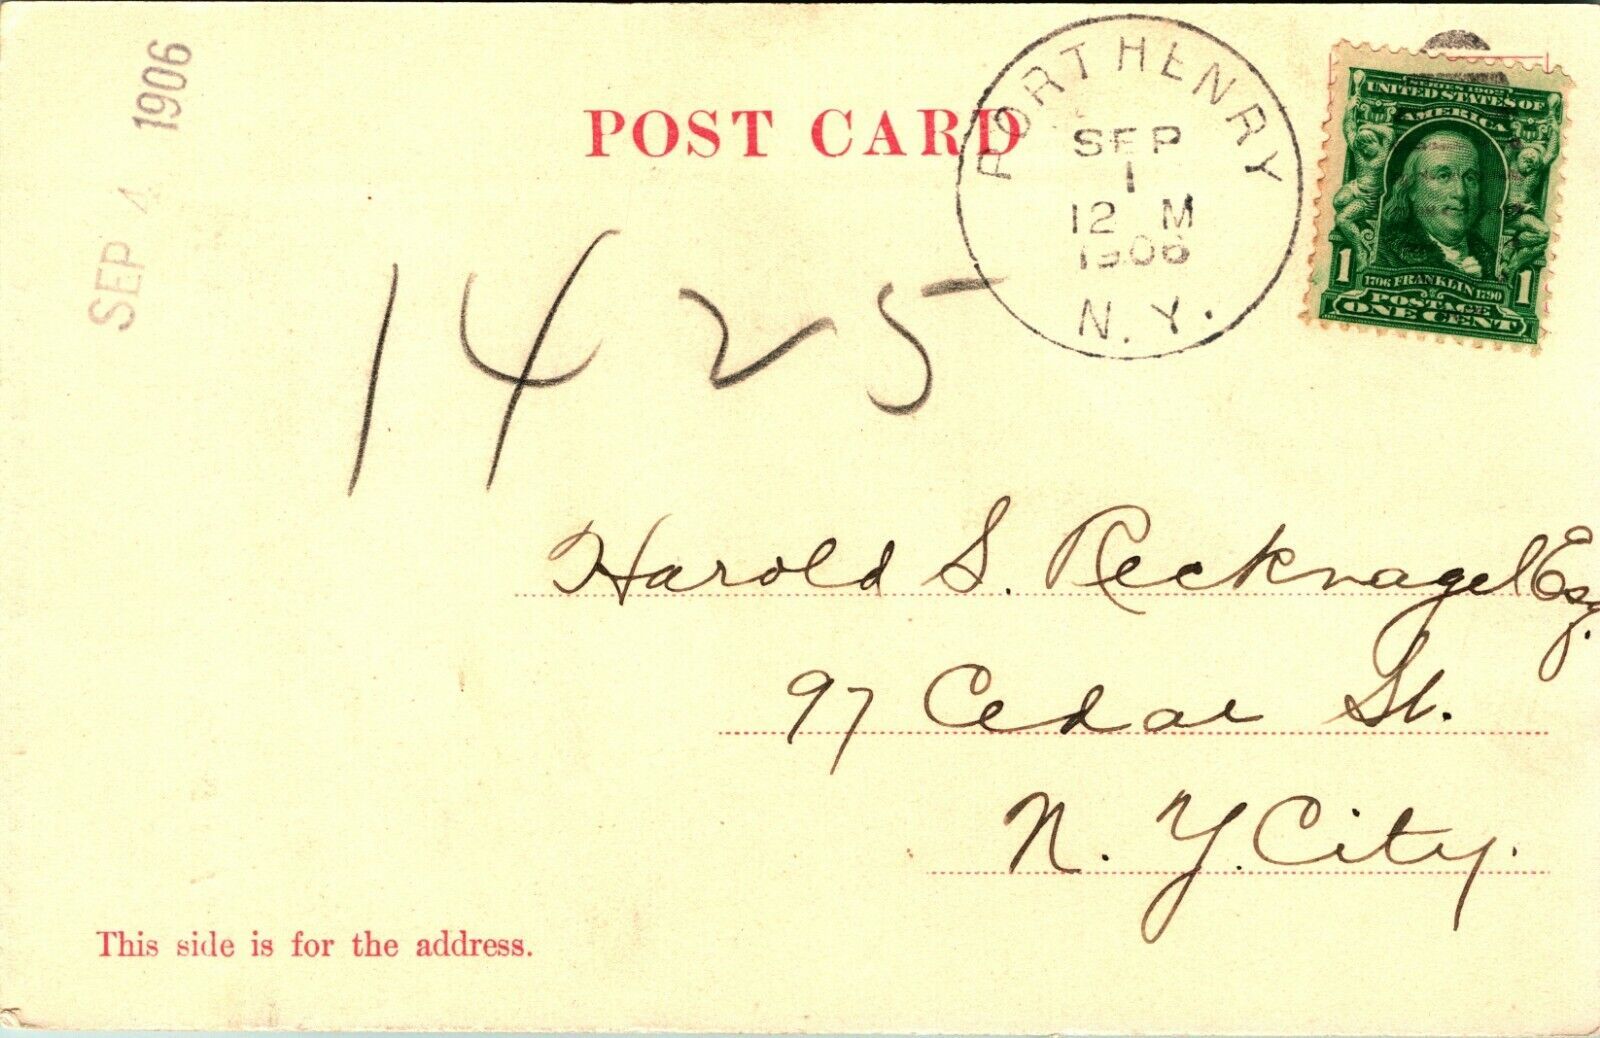 SEP 4 1906
POST CARD
PORT HENRY
SEP
1
12 M
1906
N. Y.
SERIES 1902
UNITED STATES OF
AMERICA
1 1706 FRANKLIN 1790 1
POSTAGE
ONE CENT
1425
Harold S. Recknagel Esq.
97 Cedar St.
N. Y. City.
This side is for the address.